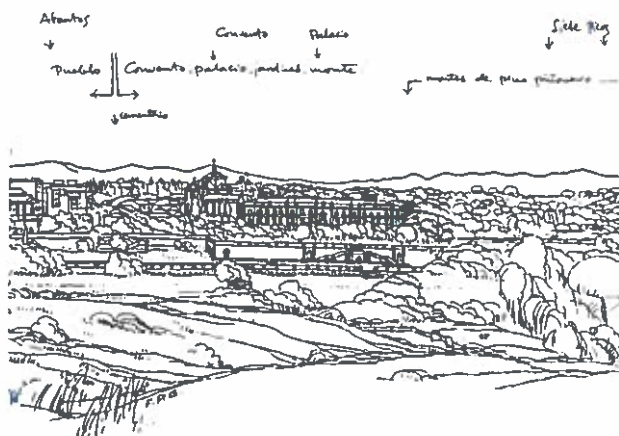 Abantos
Convento
Palacio
Siete Picos
Pueblo
Convento, palacio, jardines, monte
montes de pinos
cementerio